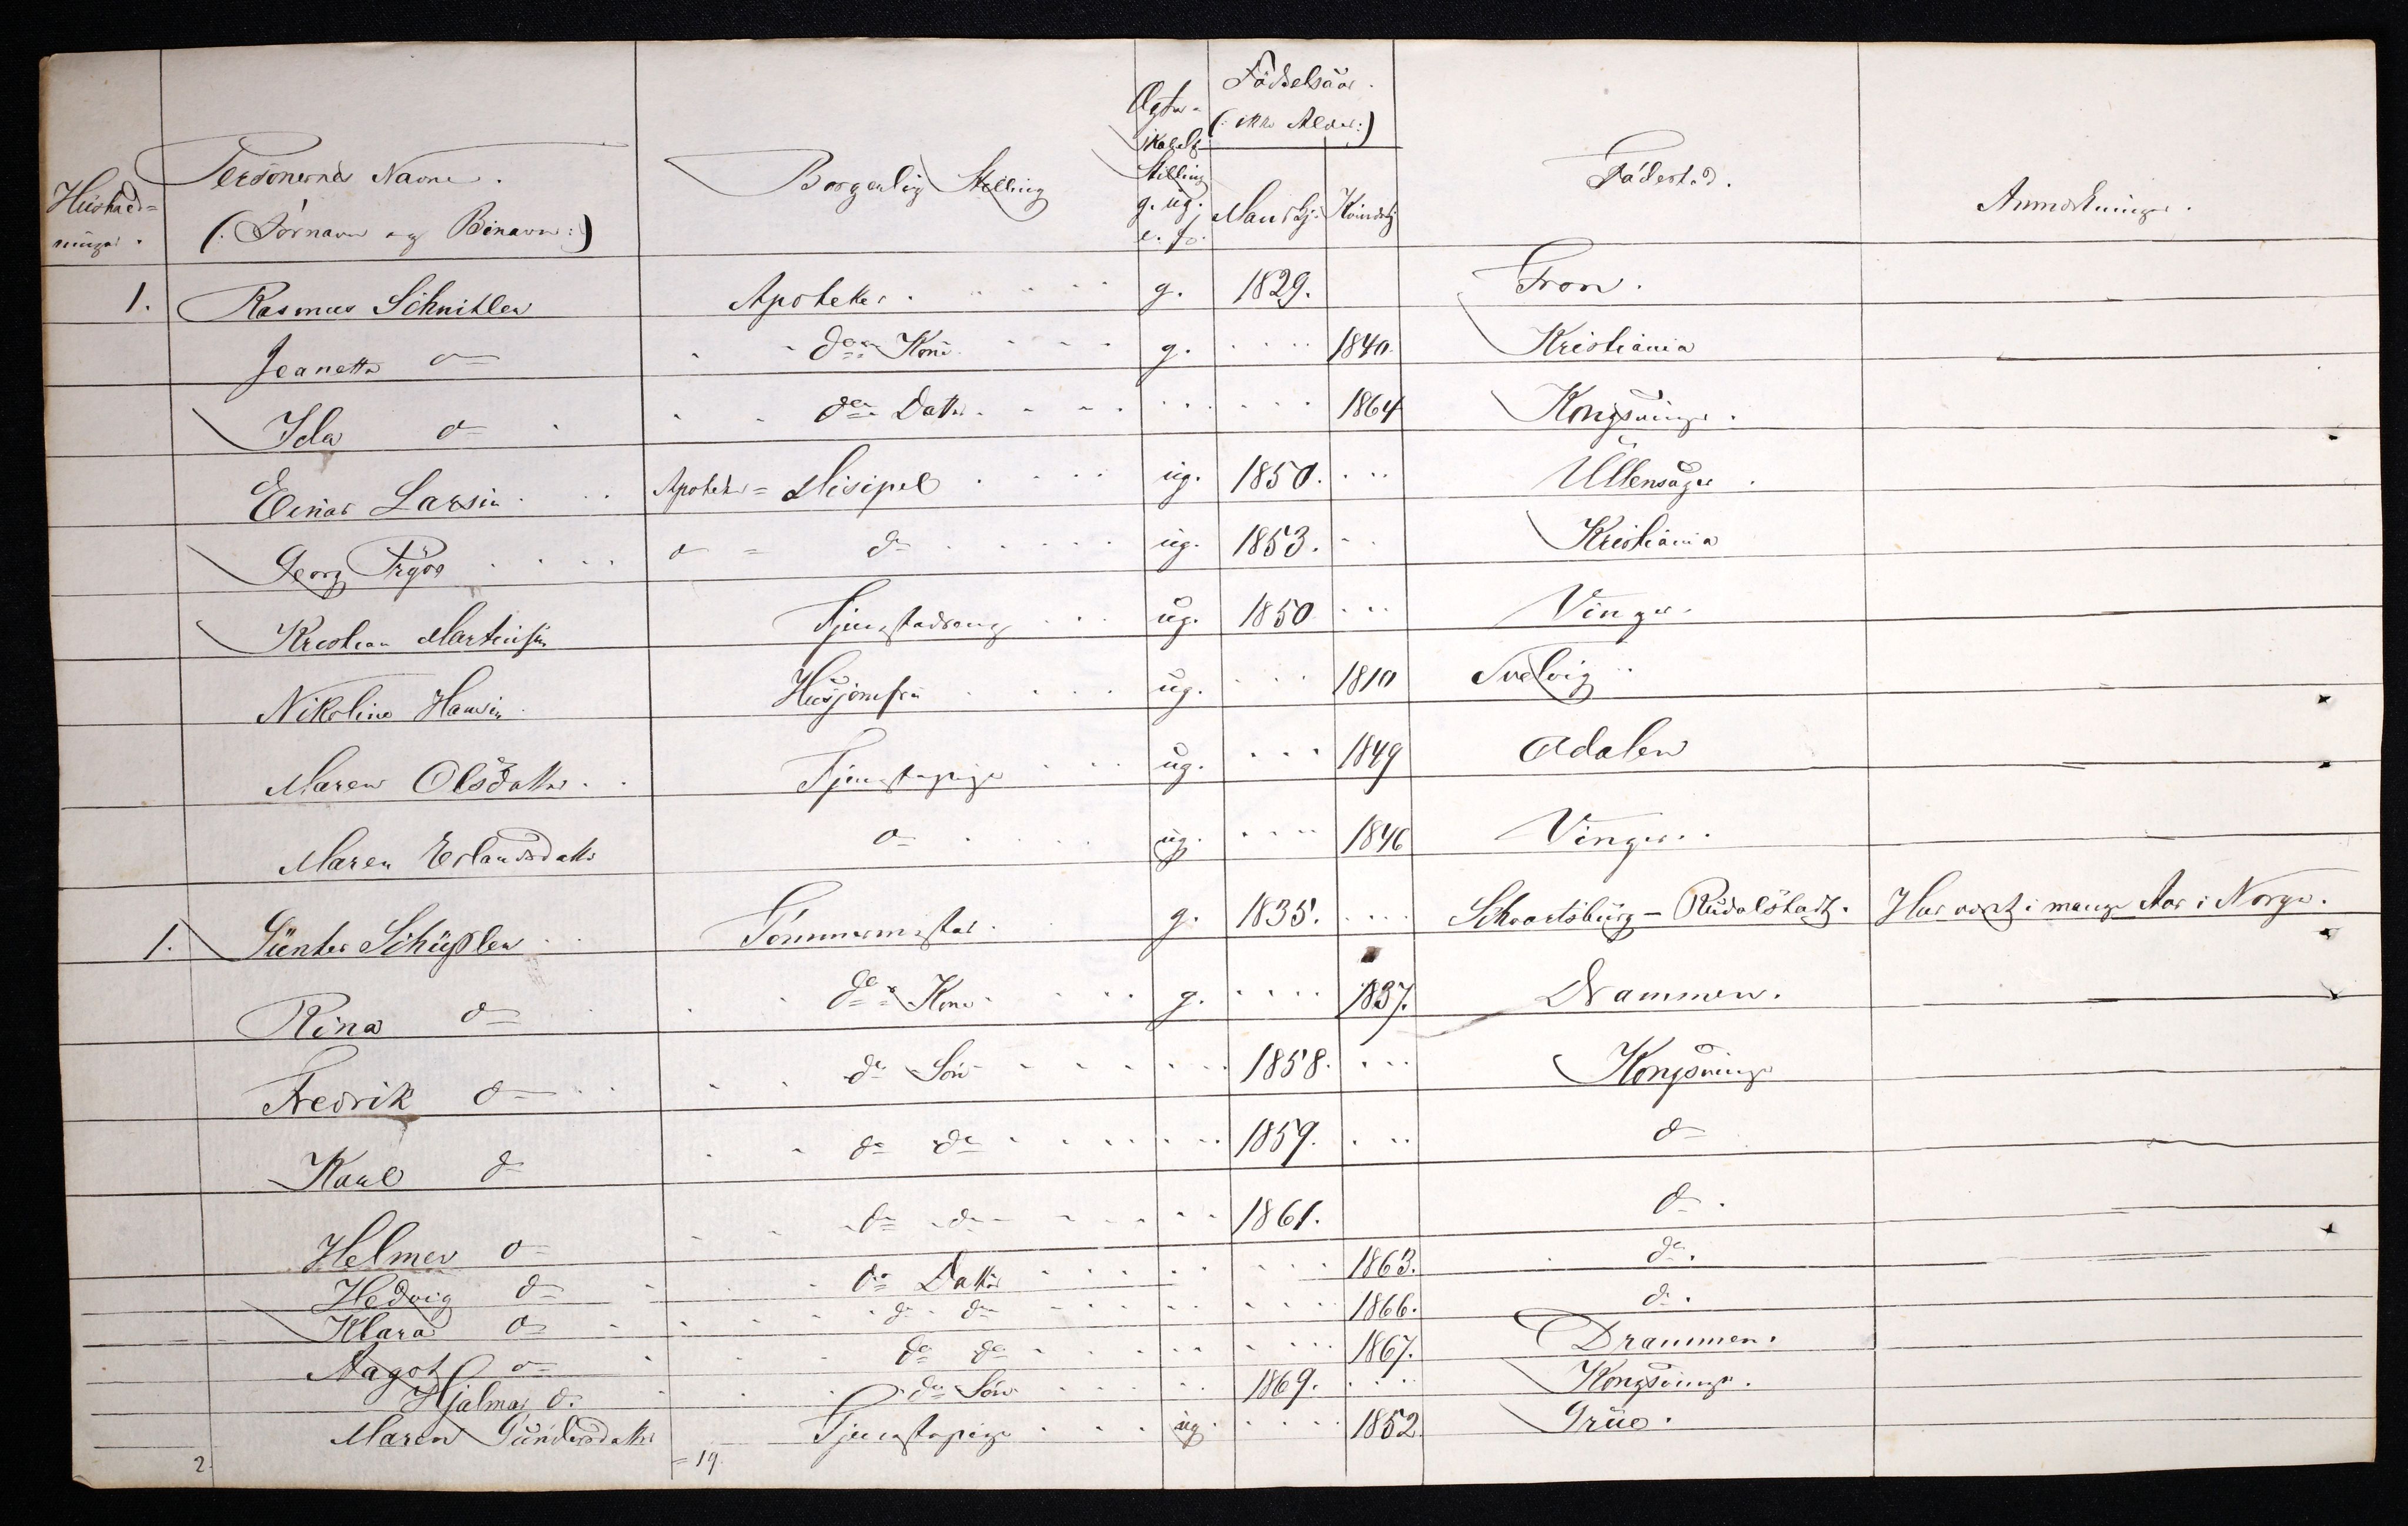 Hushold=
ninger.
Personernes Navne.
(: Fornavn og Binavn :)
Borgerlig Stilling
Ægte-
skabelg
Stilling
g. ug.
e. f.
Födselsaar.
(: ikke Alder :)
Mandkj.
Kvindekj
Födested.
Anmærkninger.
1. Rasmus Schnitler Apoteker g. 1829. Fron.
Jeanette do do Kone g. 1840. Kristiania
Ida do do Datter 1864 Kongsvinger.
Einar Larsen Apoteker = Disipel ug. 1850. Ullensager.
Georg do = do ug. 1853. Kristiania
Kristian Martinsen Tjenestedreng ug. 1850 Vinger.
Nikoline Hansen Husjomfru ug. 1810 Svelvig
Maren Olsdatter Tjenestepige ug. 1849 Adalen
Maren Erlandsdatter do ug. 1846 Vinger.
1. Günter Schüßler Tömmermester g. 1835. Schvartsburg - Rudolstadt. Har vært i mange Aar i Norge.
Rina do do Kone g. 1837. Drammen.
Fredrik do do Sön 1858. Kongsvinger
Karl do do do 1859. do
Helmer do do do 1861. do.
Hedvig do do Datter 1863. do.
Klara do do do 1866. do.
Dagot do do do 1867. Drammen.
Hjalmar do. do Sön 1869. Kongsvinger.
Maren Gundersdatter Tjenestepige ug. 1852 Grue.
2. = 19.